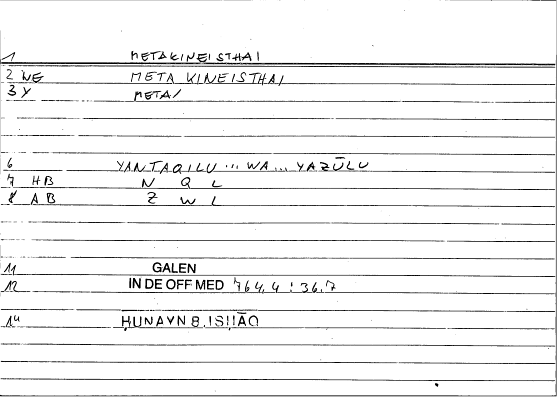 1 METAKINEISTHAI
2 WE META KINEISTHAI
3 Y META/
6 YANTAQILU ... WA ... YAZŪLU
7 HB N Q L
8 AB Z W L
11 GALEN
12 IN DE OFF MED 764,4 : 36,7
14 ḤUNAYN B.ISḤĀQ